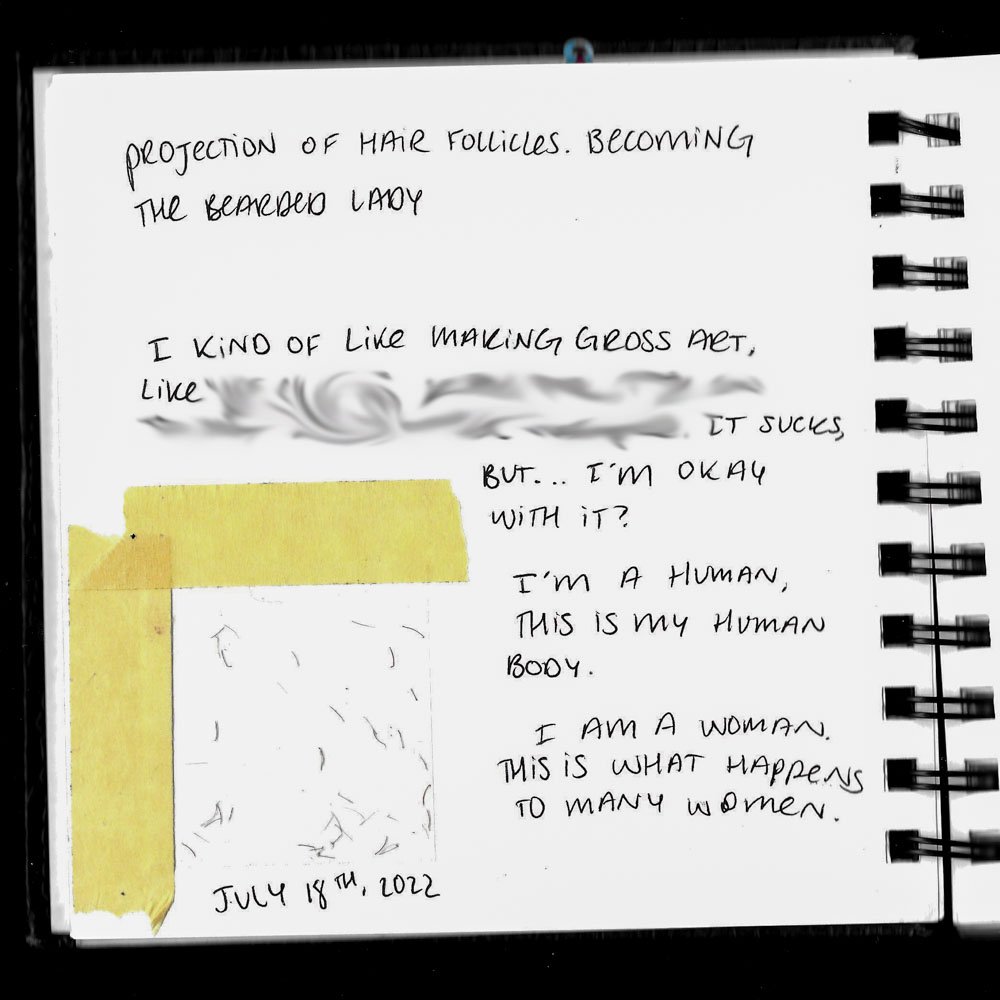 PROJECTION OF HAIR FOLLICLES. BECOMING
THE BEARDED LADY
I KIND OF LIKE MAKING GROSS ART,
LIKE
IT SUCKS,
BUT... I'M OKAY
WITH IT?
I'M A HUMAN,
THIS IS MY HUMAN
BODY.
I AM A WOMAN.
THIS IS WHAT HAPPENS
TO MANY WOMEN.
JULY 18TH, 2022